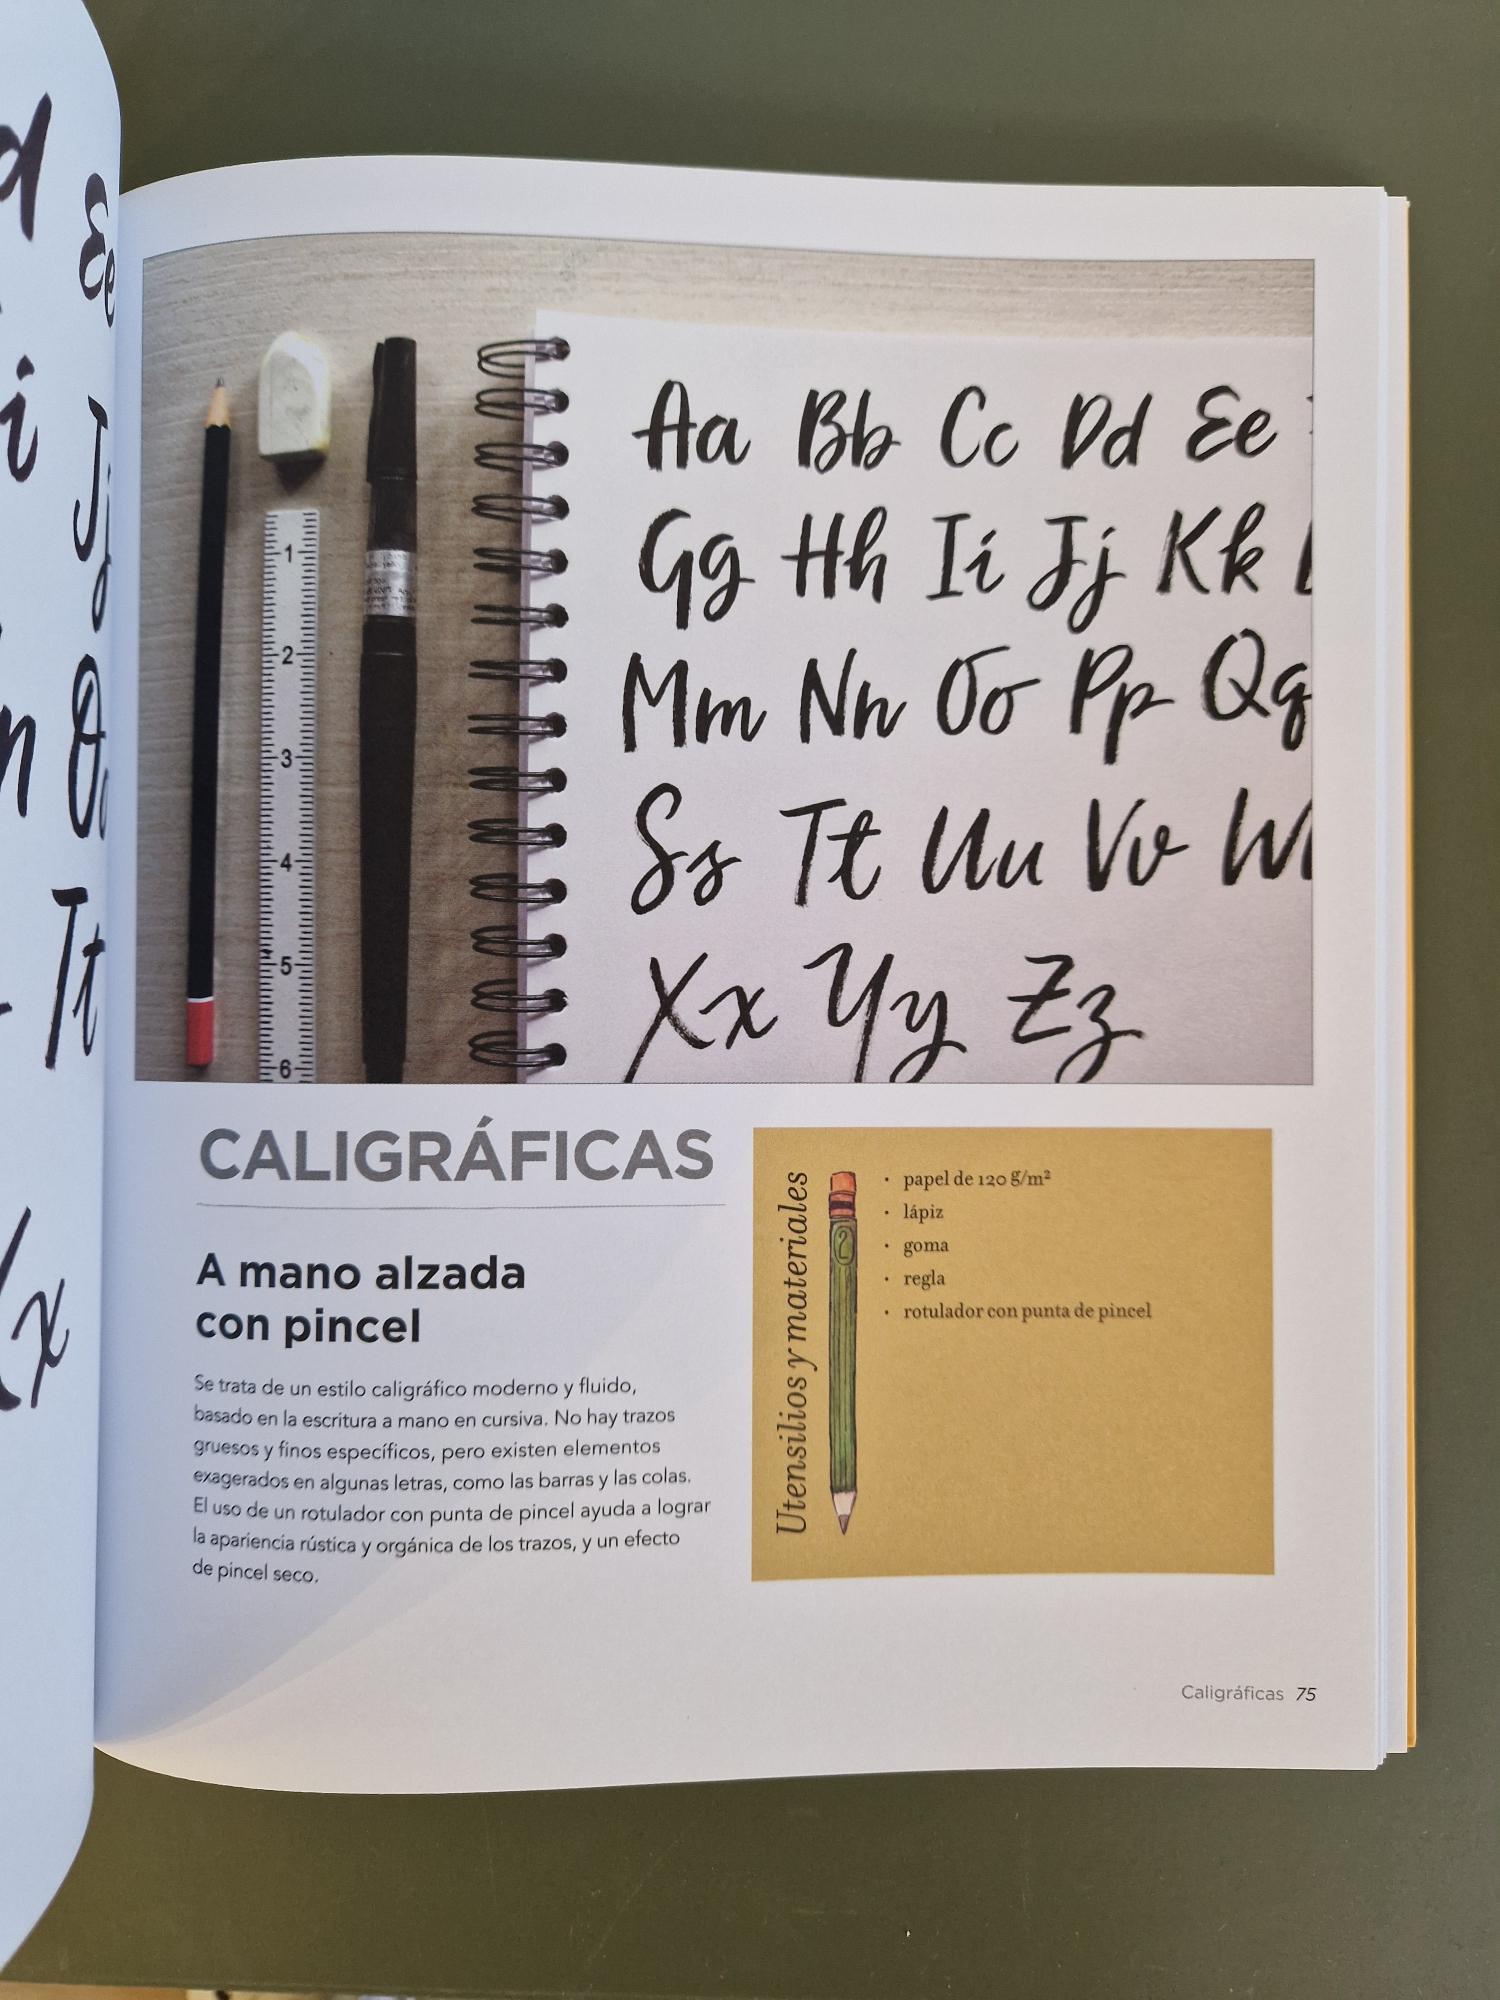 d Ee
i Jj
n Oo
Tt
x
1
2
3
4
5
6
Aa Bb Cc Dd Ee
Gg Hh Ii Jj Kk
Mm Nn Oo Pp Qq
Ss Tt Uu Vv W
Xx Yy Zz
CALIGRÁFICAS
A mano alzada
con pincel
Se trata de un estilo caligráfico moderno y fluido,
basado en la escritura a mano en cursiva. No hay trazos
gruesos y finos específicos, pero existen elementos
exagerados en algunas letras, como las barras y las colas.
El uso de un rotulador con punta de pincel ayuda a lograr
la apariencia rústica y orgánica de los trazos, y un efecto
de pincel seco.
Utensilios y materiales
2
• papel de 120 g/m²
• lápiz
• goma
• regla
• rotulador con punta de pincel
Caligráficas 75